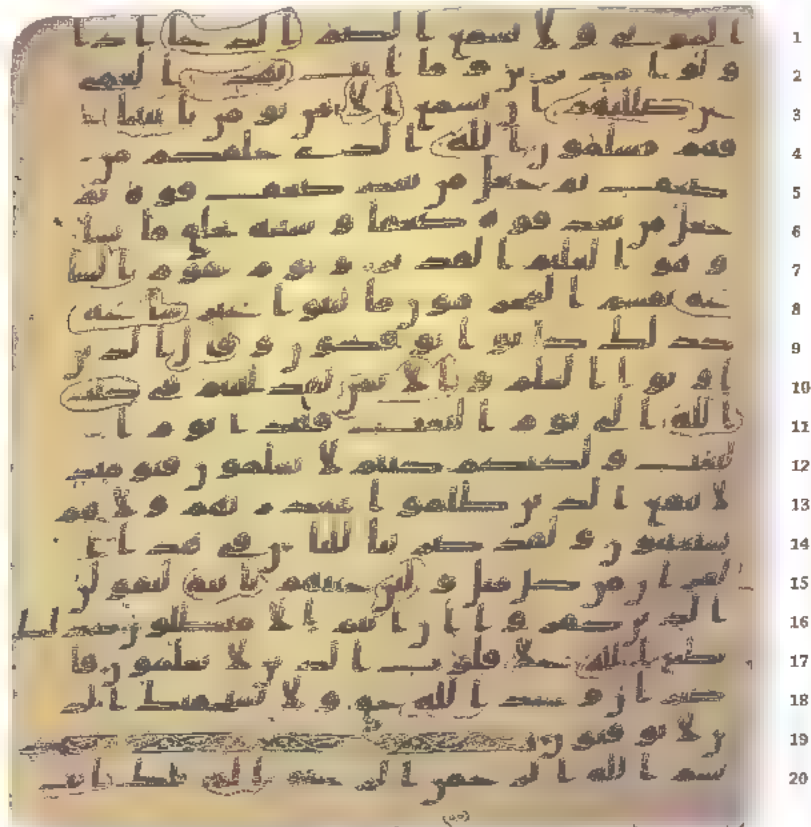 1 الموتى ولا تسمع الصم الدعا اذا
2 ولوا مدبرين وما انت بهد العمى
3 عن ضللتهم ان تسمع الا من يومن بايتنا
4 فهم مسلمون الله الذى خلقكم من
5 ضعف ثم جعل من بعد ضعف قوة ثم
6 جعل من بعد قوة ضعفا وشيبة يخلق ما يشا
7 وهو العليم القدير ويوم تقوم السا
8 عة يقسم المجرمون ما لبثوا غير ساعة
9 كذلك كانوا يوفكون وقال الذين
10 اوتوا العلم والايمن لقد لبثتم فى كتب
11 الله الى يوم البعث فهذا يوم ا
12 لبعث ولكنكم كنتم لا تعلمون فيومئذ
13 لا ينفع الذين ظلموا معذرتهم ولا هم
14 يستعتبون ولقد ضربنا للناس فى هذا ا
15 لقران من كل مثل ولئن جئتهم باية ليقولن
16 الذين كفروا ان انتم الا مبطلون كذلك
17 يطبع الله على قلوب الذين لا يعلمون فا
18 صبر ان وعد الله حق ولا يستخفنك الذ
19 ين لا يوقنون
20 بسم الله الرحمن الرحيم الم تلك ايت